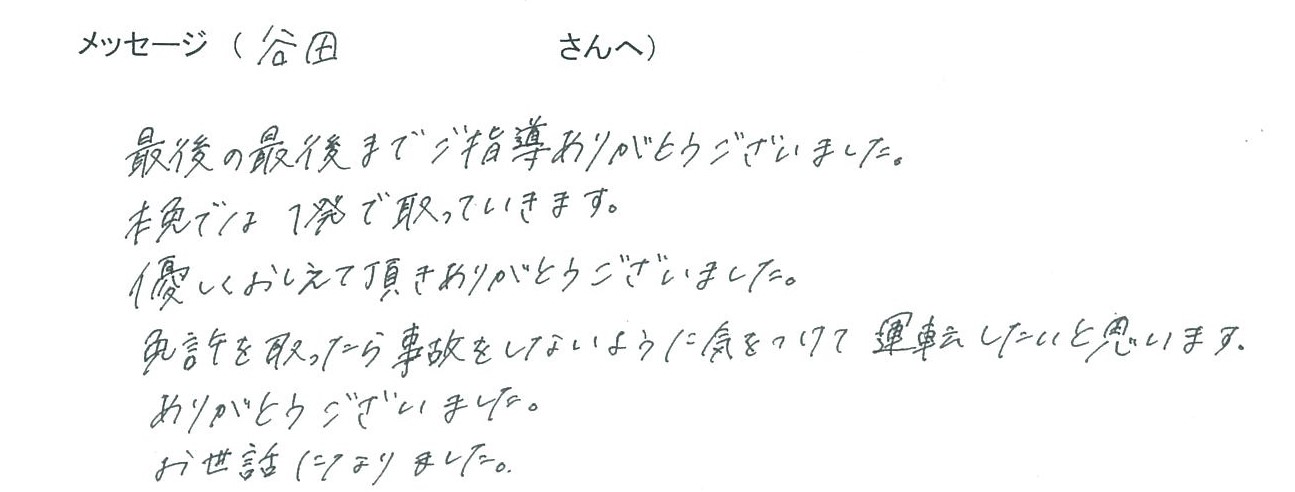 メッセージ（谷田 さんへ）
最後の最後までご指導ありがとうございました。
本免では1発で取っていきます。
優しくおしえて頂きありがとうございました。
免許を取ったら事故をしないように気をつけて運転したいと思います。
ありがとうございました。
お世話になりました。